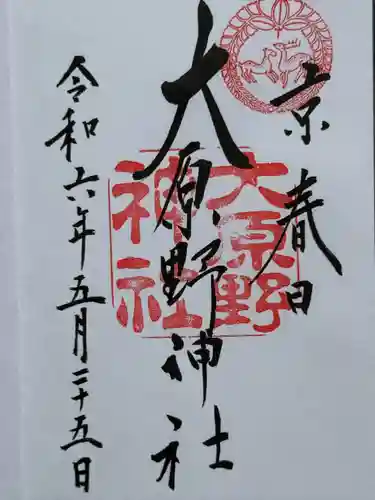 京春日
大原野神社
令和六年五月二十五日
大原野
神社